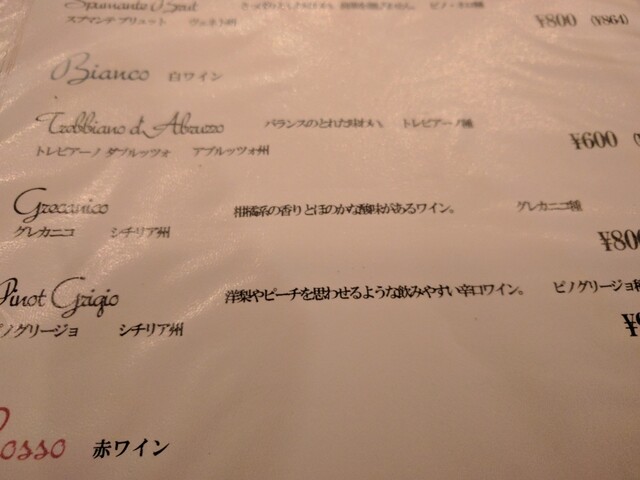 Spumante Brut ピノ・ネロ種
スプマンテ ブリュット ヴェネト州 ¥800 (¥864)
Bianco 白ワイン
Trebbiano d'Abruzzo バランスのとれた味わい トレビアーノ種
¥600
トレビアーノ ダブルッツォ アブルッツォ州
Grecanico 柑橘系の香りとほのかな酸味があるワイン。 グレカニコ種
グレカニコ シチリア州 ¥800
Pinot Grigio 洋梨やピーチを思わせるような飲みやすい辛口ワイン。 ピノグリージョ種
ピノグリージョ シチリア州
Rosso 赤ワイン